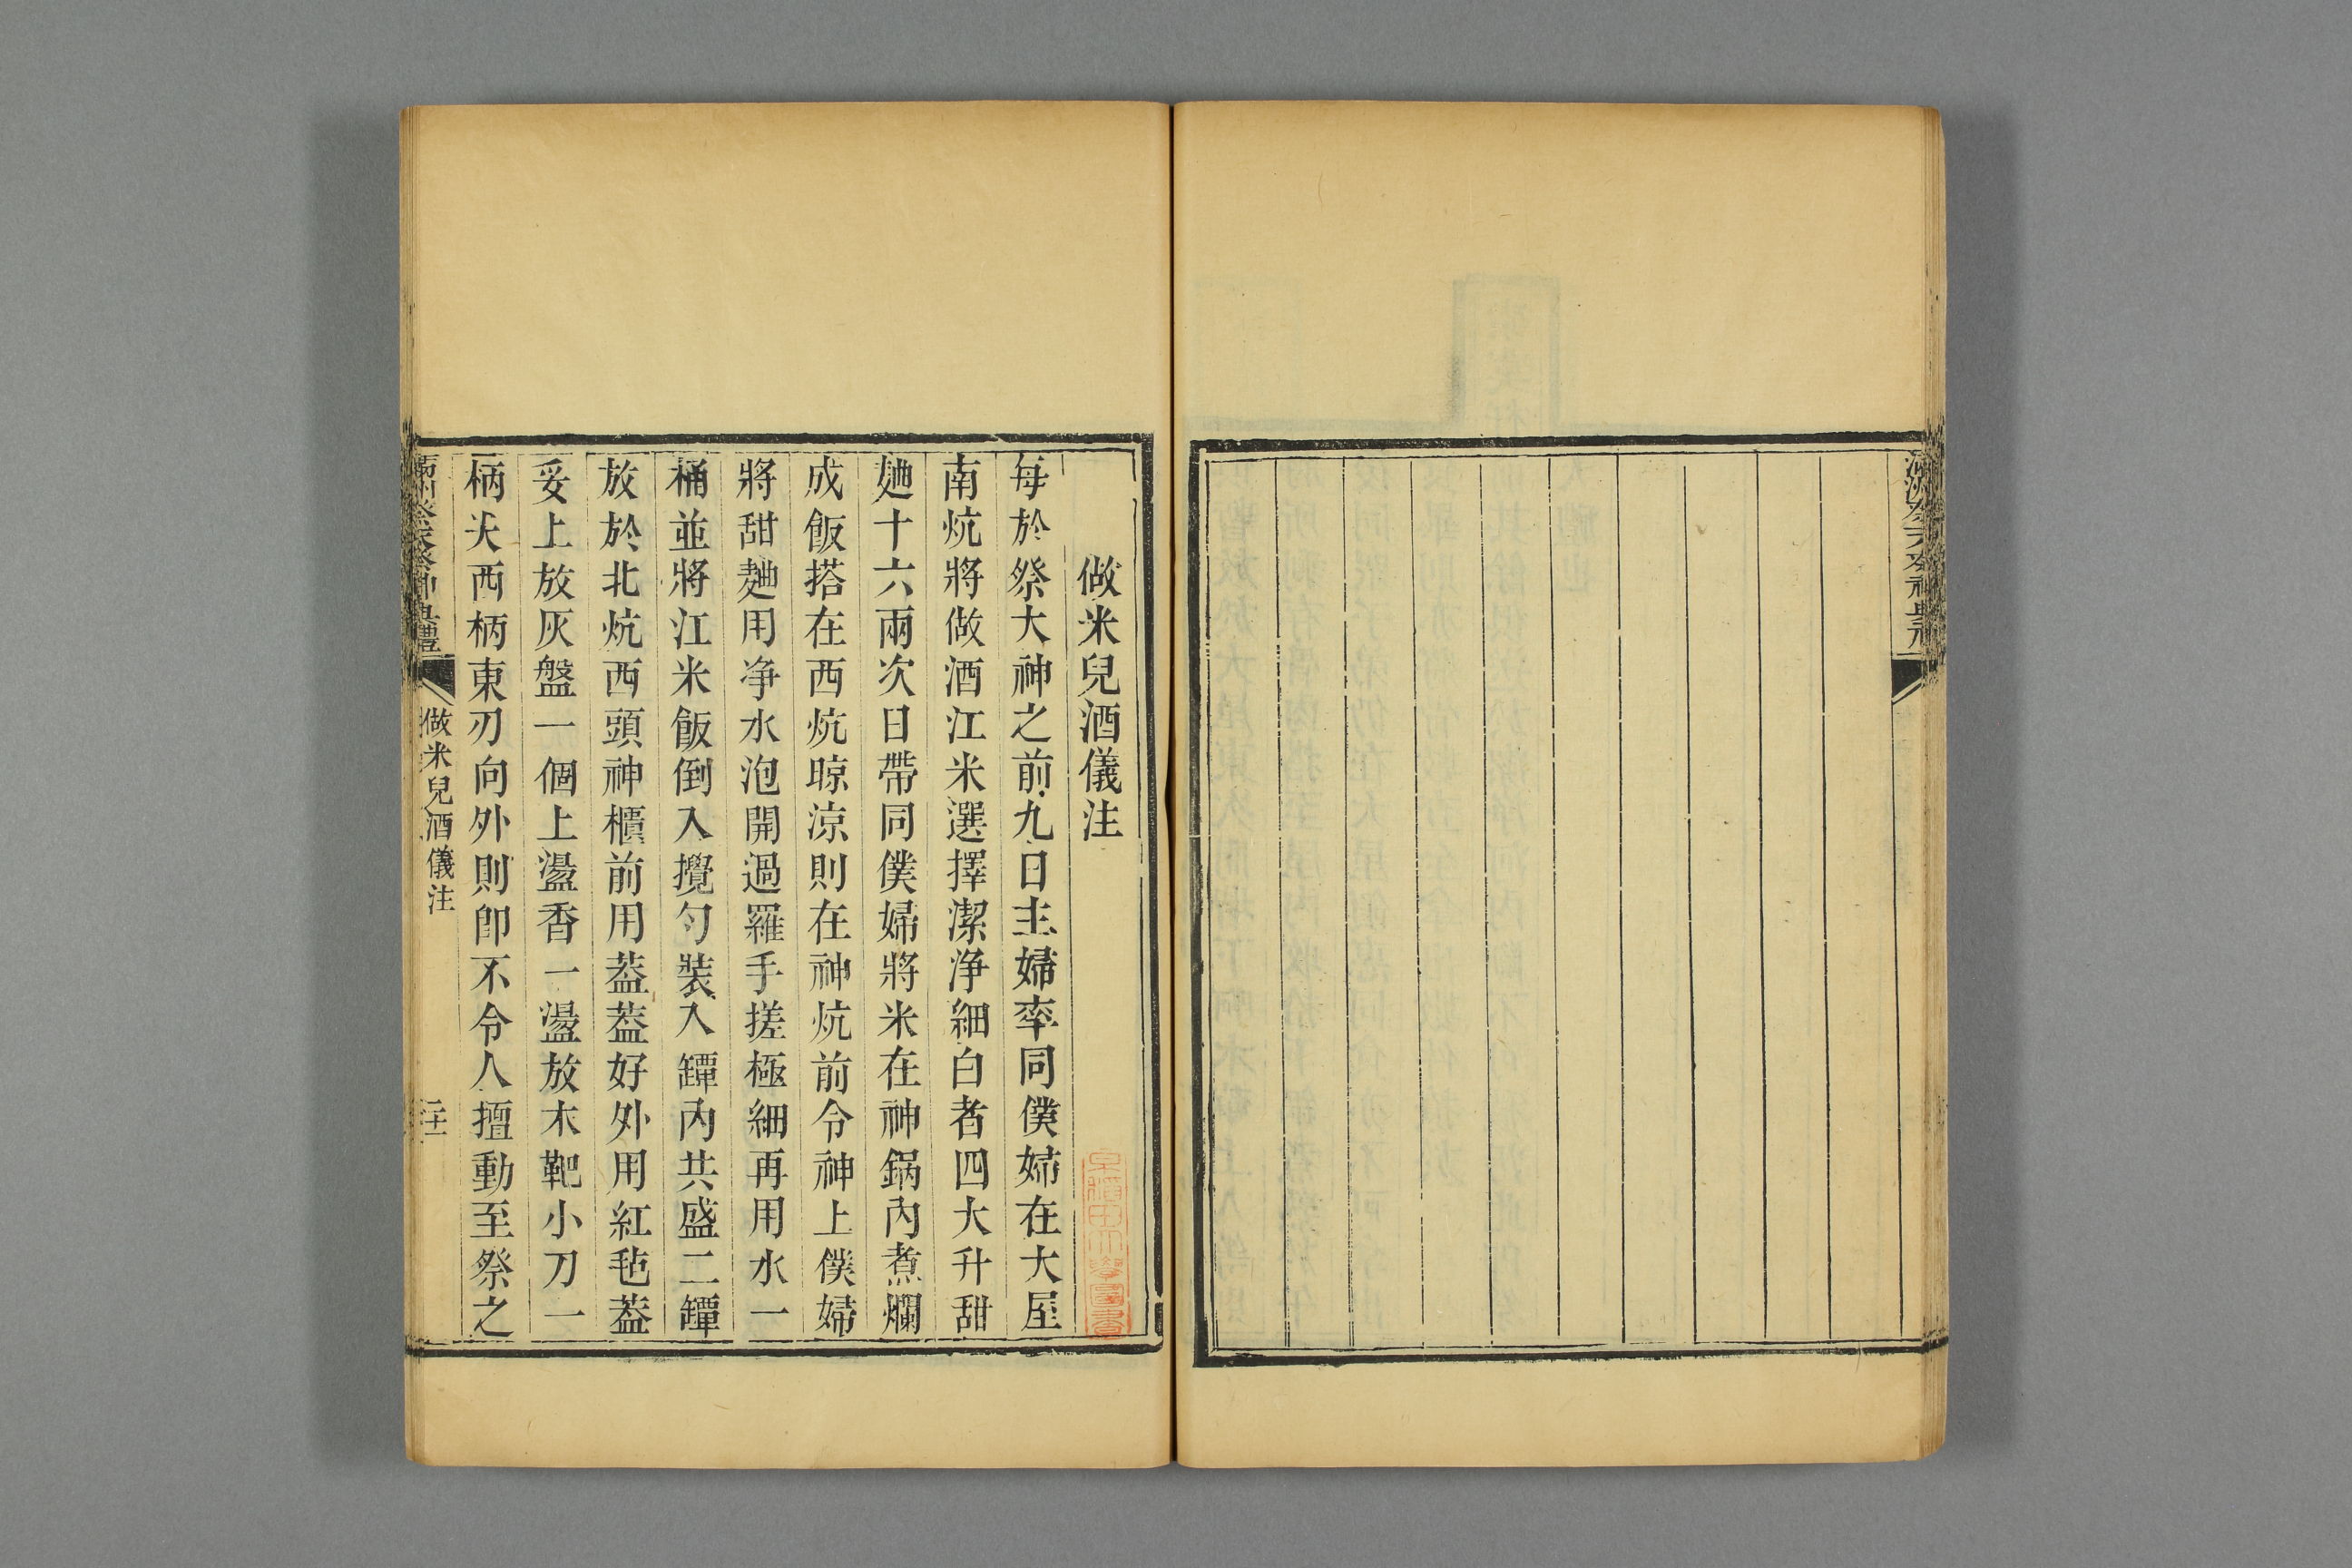 做米兒酒儀注
每於祭大神之前九日主婦率同僕婦在大屋
南炕將做酒江米選擇潔淨細白者四大升甜
麯十六兩次日帶同僕婦將米在神鍋內煮爛
成飯搭在西炕晾涼則在神炕前令神上僕婦
將甜麯用净水泡開過羅手搓極細再用水一
桶並將江米飯倒入攪勻裝入罈內共盛二罈
放於北炕西頭神櫃前用蓋蓋好外用紅毡蓋
妥上放灰盤一個上盪香一盪放木靶小刀一
柄尖西柄東刃向外則即不令人擅動至祭之
滿洲祭天祭神典禮
做米兒酒儀注